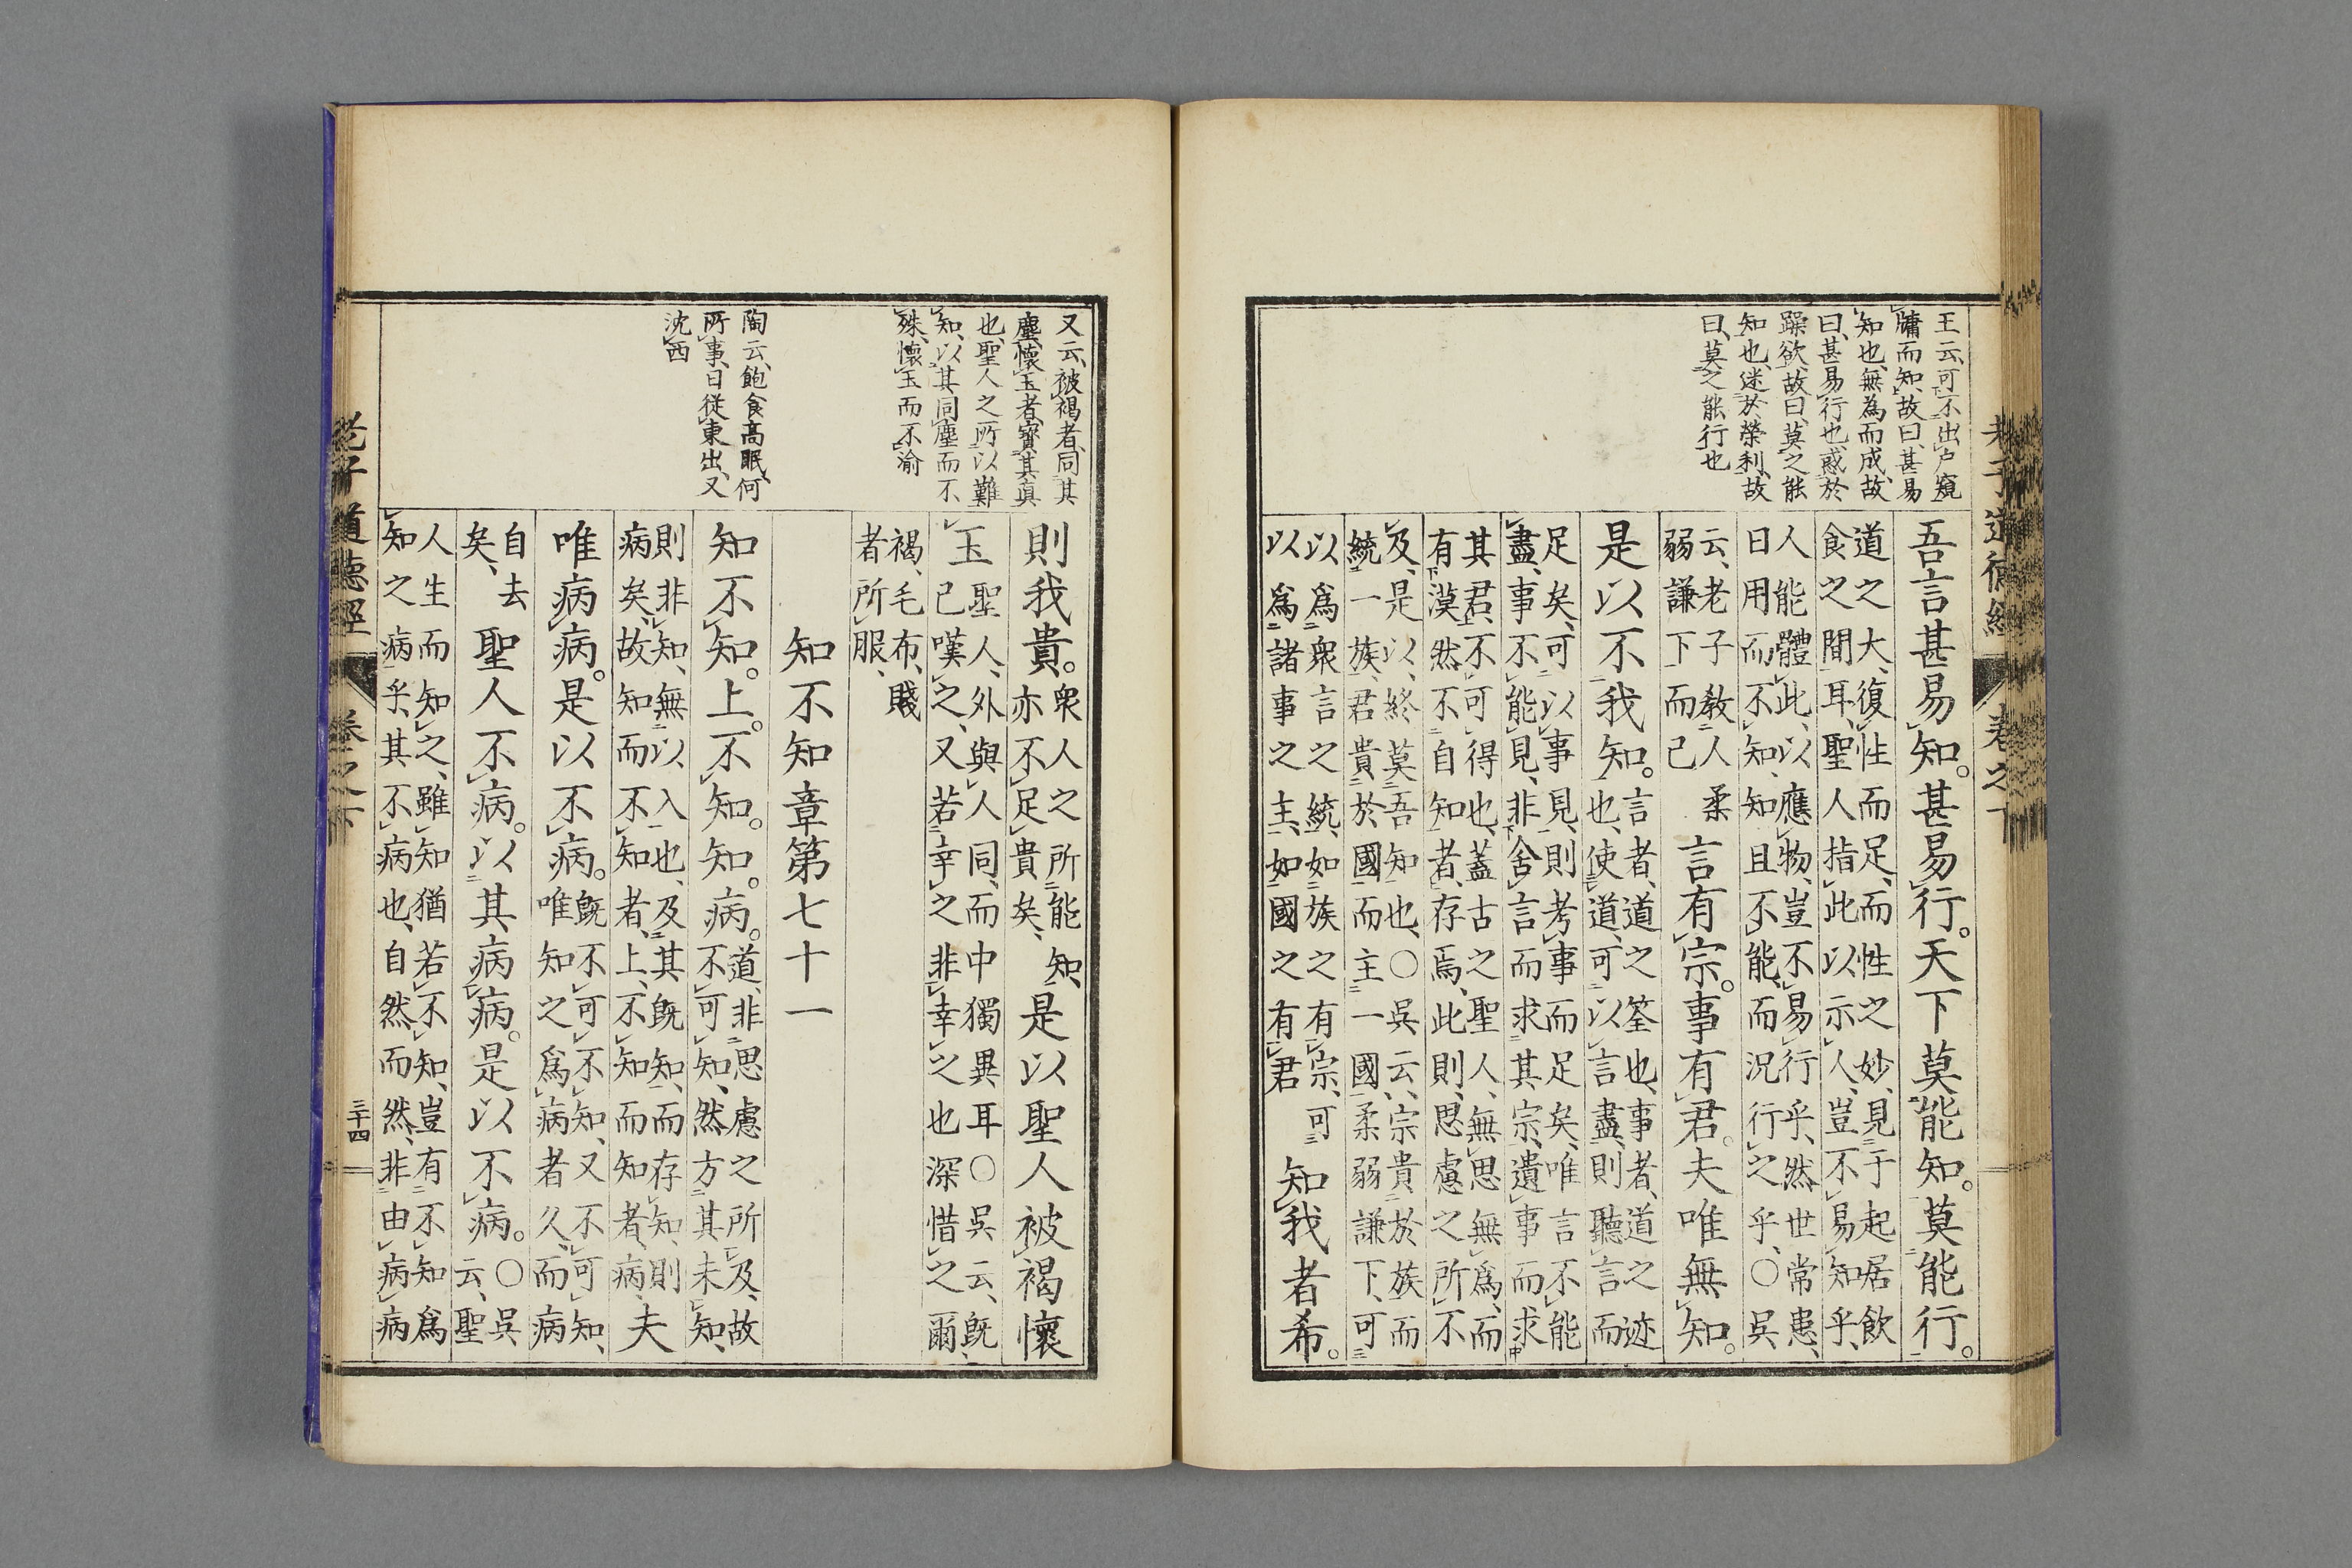 老子道德經 卷之下
王云、可不出戶窺
牖而知、故曰、甚易
知也、無為而成、故
曰、甚易行也、惑於
躁欲、故曰、莫之能
知也、迷於榮利、故
曰、莫之能行也
吾言甚易知。甚易行。天下莫能知。莫能行。
道之大、復性而足、而性之妙、見于起居飲
食之間耳、聖人指此以示人、豈不易知乎、
人能體此、以應物、豈不易行乎、然世常患、
日用而不知、知且不能、而況行之乎、○吳
云、老子教人柔
弱謙下而已
言有宗。事有君。夫唯無知。
是以不我知。
言者、道之筌也、事者、道之迹
也、使道可以言盡、則聽言而
足矣、可以事見、則考事而足矣、唯言不能
盡、事不能見、非舍言而求其宗、遺事而求
其君、不可得也、蓋古之聖人、無思無爲、而
有漠然不自知者、存焉、此則、思慮之所不
及、是以、終莫吾知也、○吳云、宗貴於族而
統一族、君貴於國而主一國、柔弱謙下、可
以爲衆言之統、如族之有宗、可
以爲諸事之主、如國之有君
知我者希。
又云、被褐者、同其
塵、懷玉者、寶其真
也、聖人之所以難
知、以其同塵而不
殊、懷玉而不渝
陶云、飽食高眠、何
所事、日從東出、又
沈西
則我貴。
衆人之所能知、
亦不足貴矣、
是以聖人被褐懷
玉
聖人、外與人同、而中獨異耳○吳云、旣、
已嘆之、又若幸之非幸之也深惜之爾、
褐、毛布、賤
者所服、
知不知章第七十一
知不知。上。不知。知。病。
道、非思慮之所及、故
不可知、然方其未知、
則非知、無以入也、及其旣知、而存知、則
病矣、故知而不知者、上、不知而知者、病、
夫
唯病病。是以不病。
旣不可不知、又不可知、
唯知之爲病者久、而病
自去
矣、
聖人不病。以其病病。是以不病。
○吳
云、聖
人生而知之、雖知猶若不知、豈有不知爲
知之病乎、其不病也、自然而然、非由病病
老子道德經 卷之下 三十四